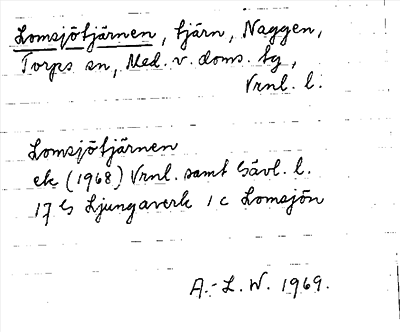 Lomsjötjärnen, tjärn, Naggen,
Torps sn, Med. v. doms. tg,
Vrnl. l.
Lomsjötjärnen
ek (1968) Vrnl. samt Gävl. l.
17 G Ljungaverk 1 c Lomsjön
A.-L. W. 1969.